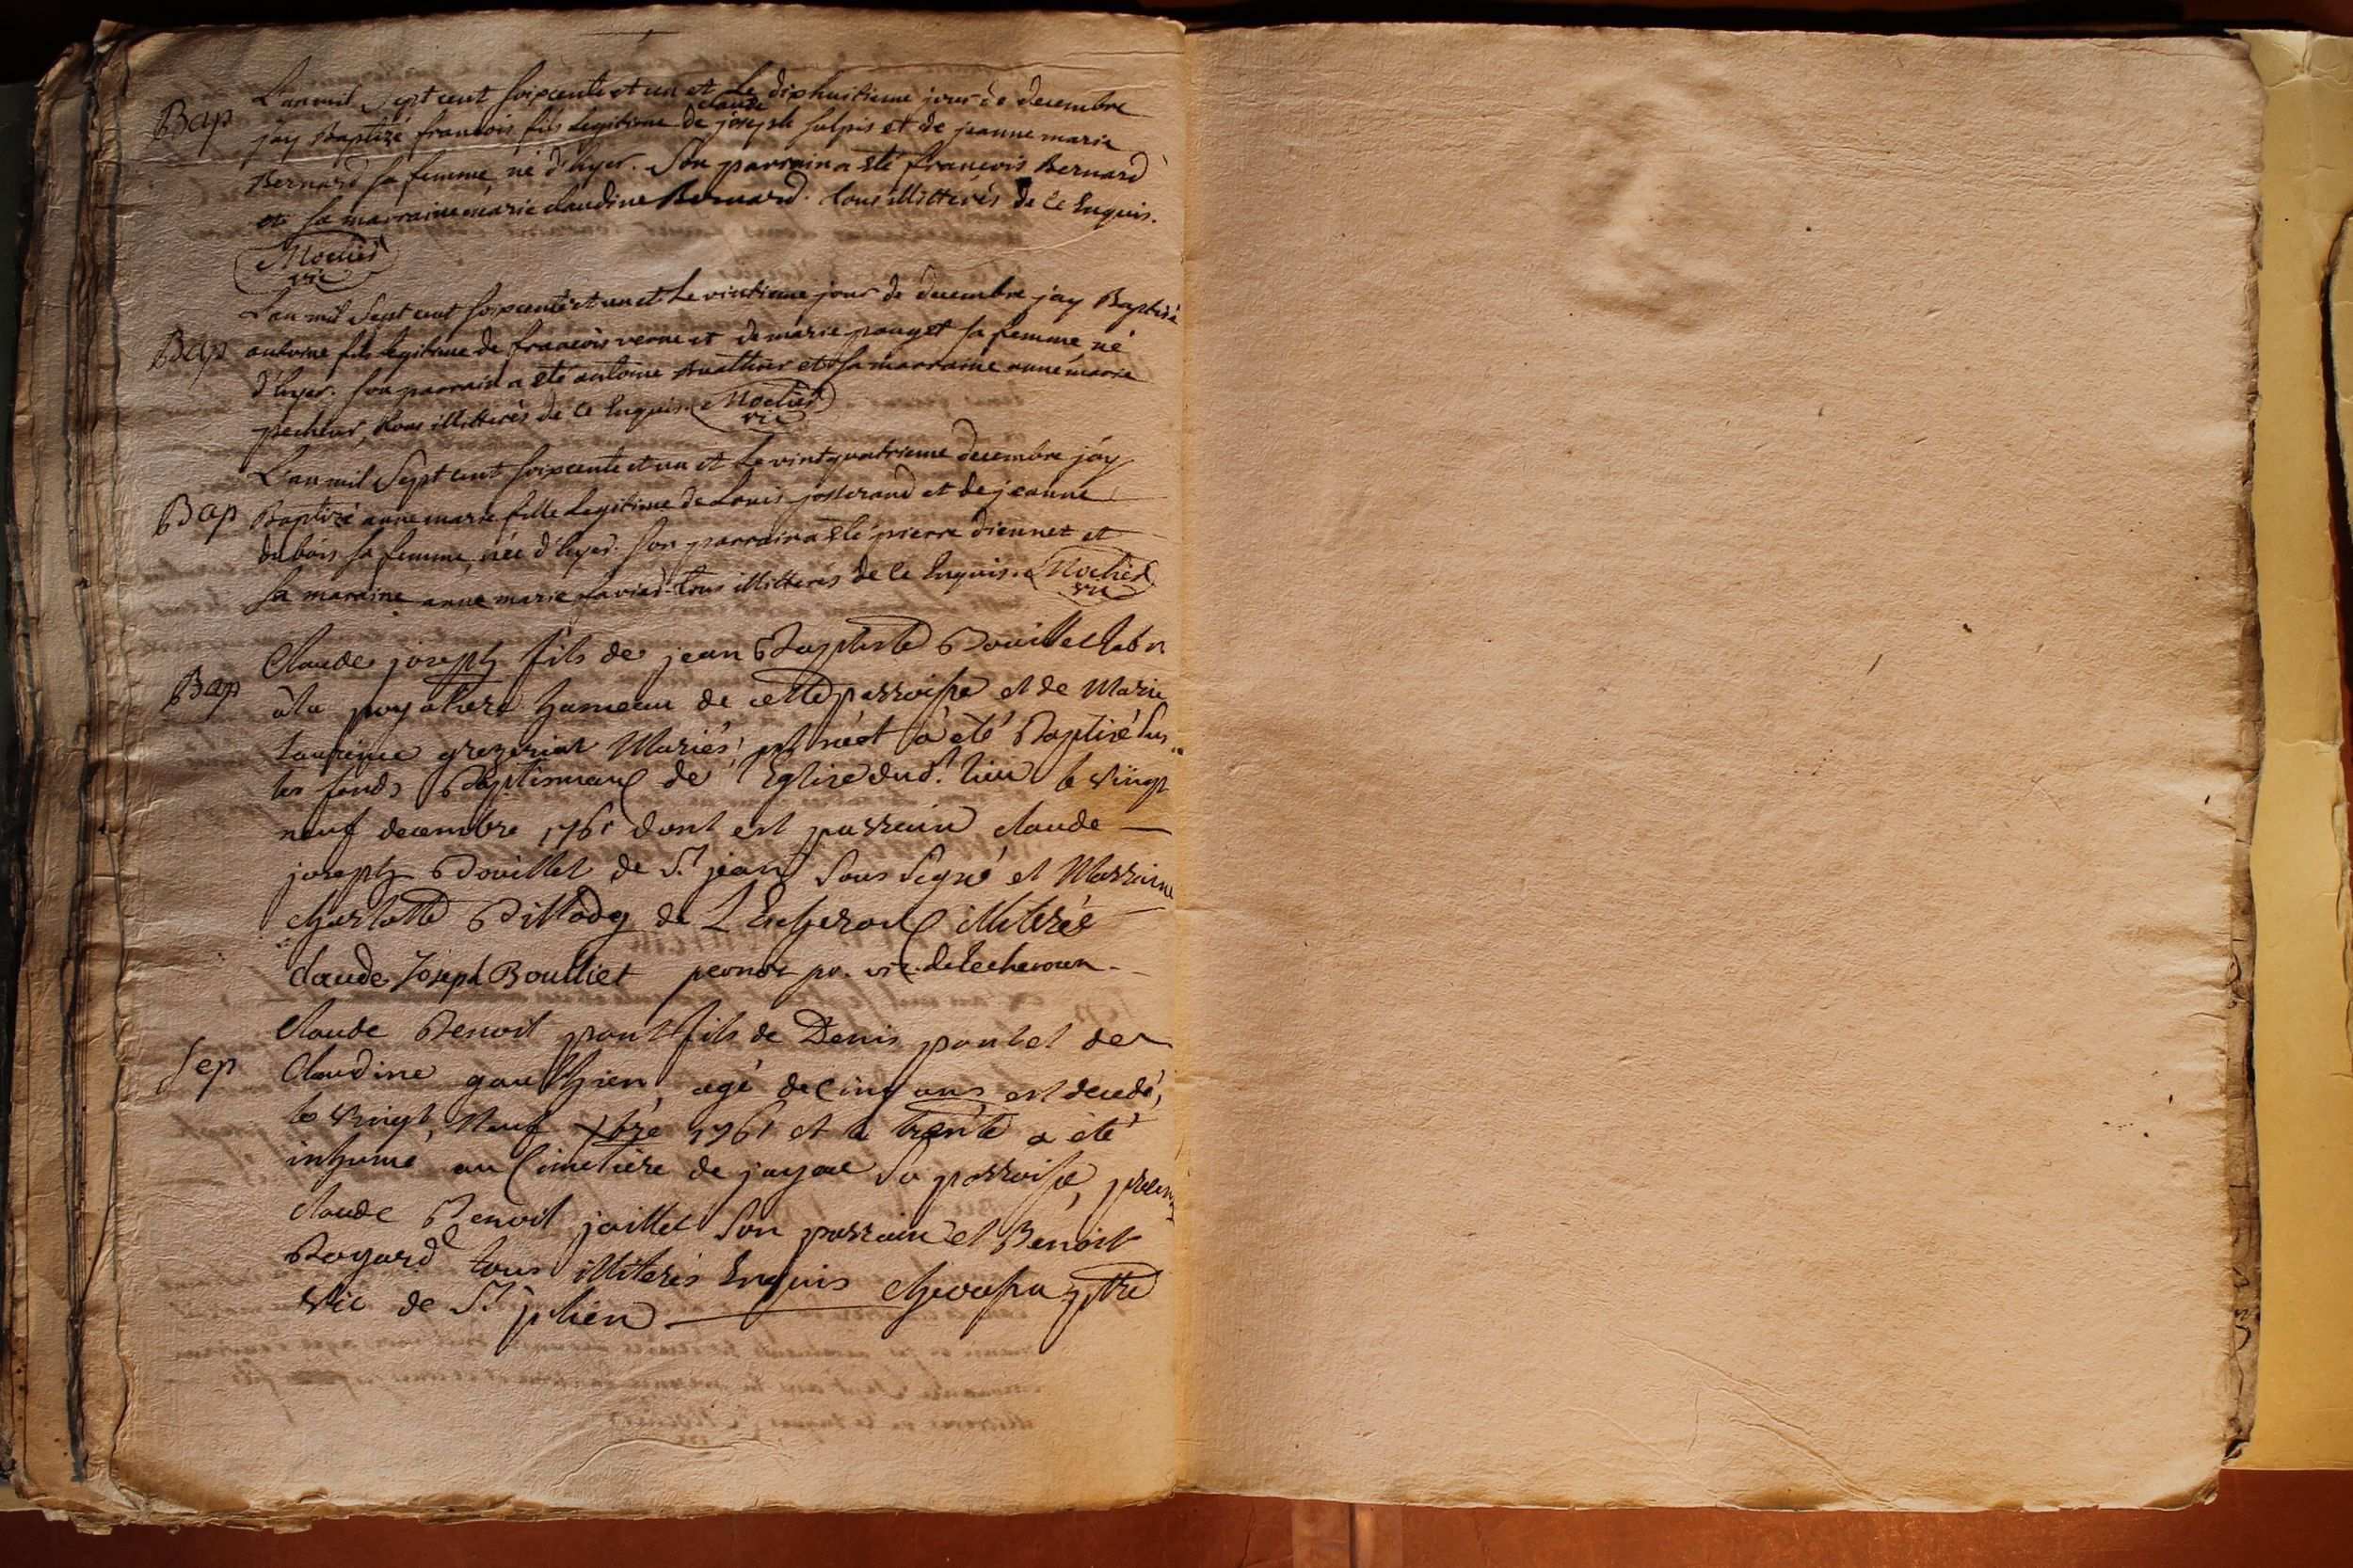 Bap
L'an mil sept cent soixcente et un et le dixhuitieme jour de decembre
jay Baptizé francois fils legitime de claude joseph sulpis et de jeanne marie
Bernard sa femme né d'hyer. Son parrain a eté francois Bernard
et sa marraine marie claudine Bernard. tous illitterés de ce Enquis.
Mochèd
vic
L'an mil sept cent soixcente et un et le vintieme jour de decembre jay Baptisé
Bap
antoine fils legitime de francois verne et de marie pauget sa femme né
d'hyer. son parrain a eté antoine et sa marraine anne marie
pecheur, tous illitterés de ce Enquis. Mochèd
vic
L'an mil sept cent soixcente et un et le vintquatrieme decembre jay
Bap
Baptizé anne marie fille legitime de Louis josserand et de jeanne
dubois sa femme, née d'hyer. son parrain a eté pierre diennet et
sa maraine anne marie tous illitterés de ce Enquis. Mochèd
vic
Claude joseph fils de jean Baptiste Bouillet labr
Bap
à la hameau de cette parroisse et de Marie
Mariés, né et a été Baptisé sur
les fonds Baptismaux de l'Eglise dud.t lieu le vingt
neuf decembre 1761 dont est parrain claude
joseph Bouillet de S.t jean sous signé et Marraine
charlotte Pillody de L'Echeroux illiterée
Claude Joseph Boulliet pernot pr. vic. de Lecheroux.
Claude Benoit pont fils de Denis pont et de
Sep
Claudine gauthier, agé de Cinq ans est decedé,
le vingt, Neuf Xbre 1761 et le trente a été
inhumé au Cimetière de jayae sa parroisse, presents
claude Benoit jaillet son parrain et Benoist
Bogard tous illiterés Enquis ptre
vic de S.t julien